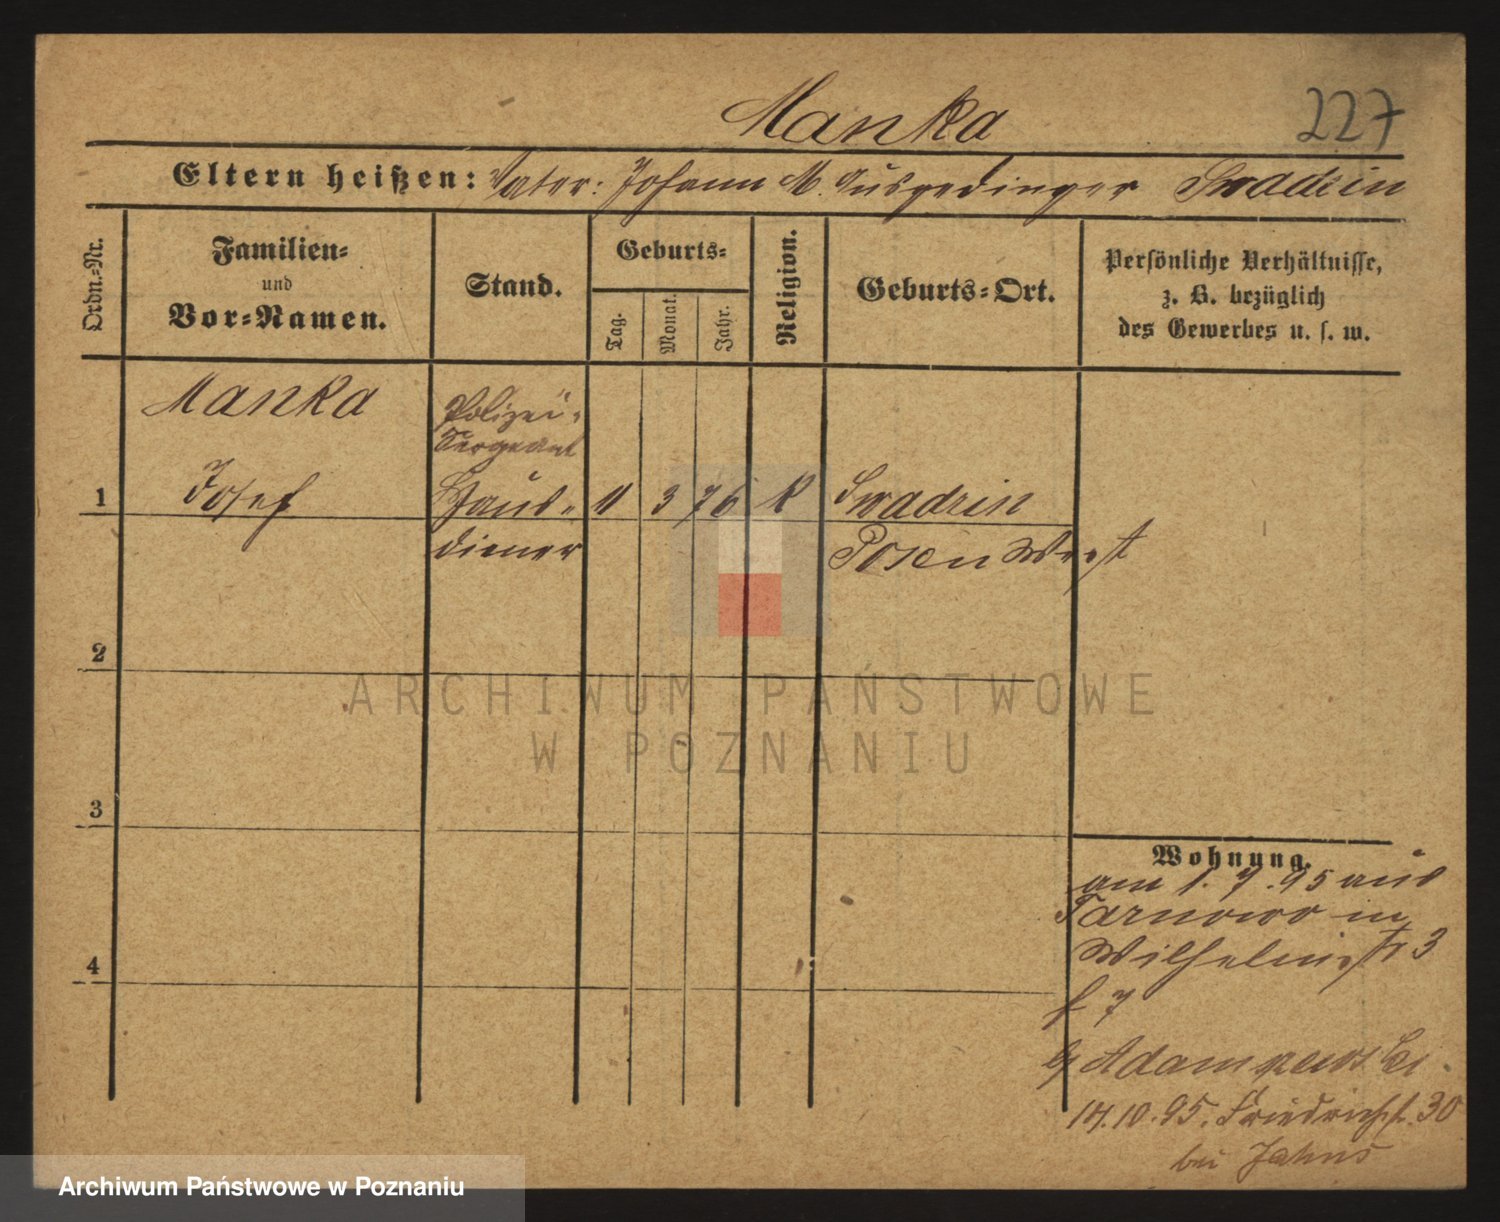 Manka
227
Eltern heißen: Vater: Johann M. Ausgedinger Swadzin
Ordn.-Nr.
Familien-
und
Vor-Namen.
Stand.
Geburts-
Tag.
Monat.
Jahr.
Religion.
Geburts-Ort.
Persönliche Verhältnisse,
z. B. bezüglich
des Gewerbes u. s. w.
Manka
Polizei-
Sergeant
1 Josef Haus- 11 3 76 K Swadzin
diener Posen West
2
3
4
Wohnung.
am 1. 7. 95 aus
Tarnowo in
Wilhelmstr 3
f 7
b/ Adamczewski
14.10.95. Friedrichst. 30
bei Jahns
ARCHIWUM PAŃSTWOWE
W POZNANIU
Archiwum Państwowe w Poznaniu